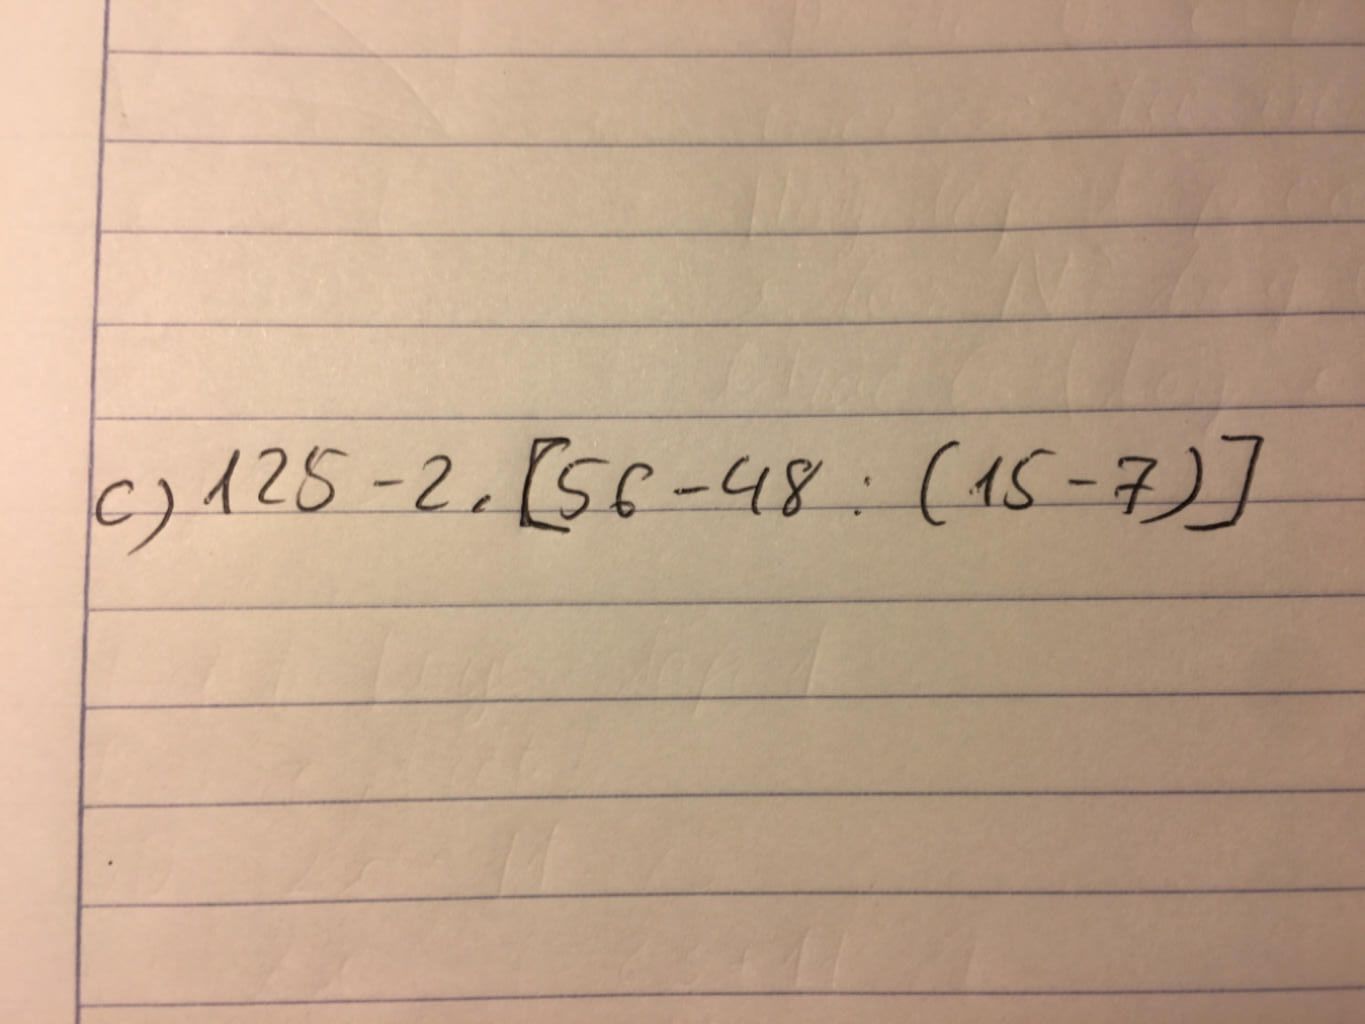 c) 125 - 2 . [56 - 48 : (15 - 7)]